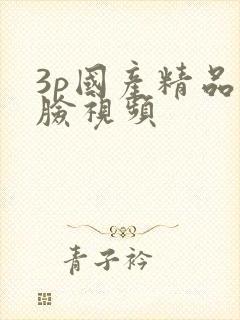 3p國產精品
臉視頻
青子衿